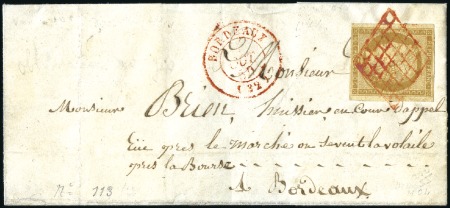 BORDEAUX
(32)
Monsieur
Monsieur Brien, huissier, en Cour d'appel
rüe près le Marché ou se vent la volaile
près la Bourse
A Bordeaux
N° 113